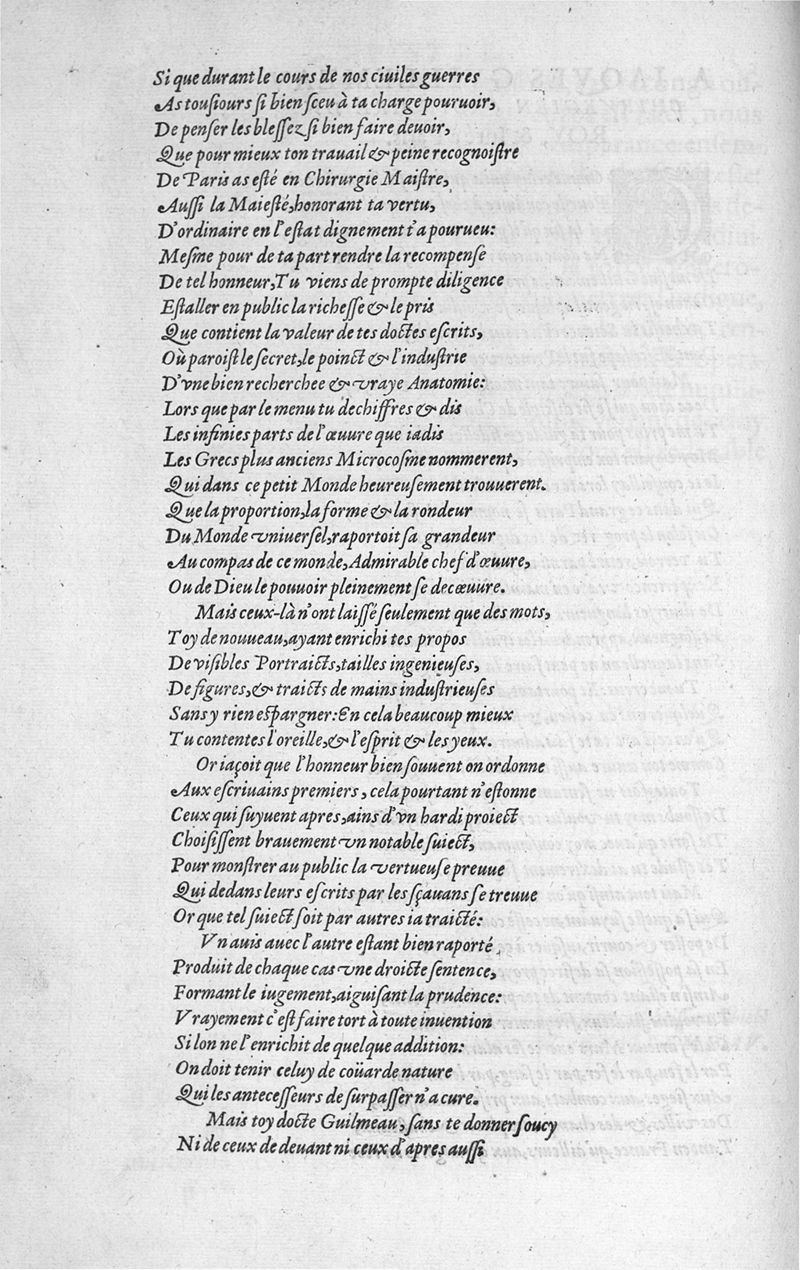 Si que durant le cours de nos ciuiles guerres
As touſiours ſi bien ſceu à ta charge pouruoir,
De penſer les bleſſez ſi bien faire deuoir,
Que pour mieux ton trauail & peine recognoiſtre
De Paris as eſté en Chirurgie Maiſtre,
Auſſi la Maieſté, honorant ta vertu,
D'ordinaire en l'eſtat dignement t'a pourueu:
Meſme pour de ta part rendre la recompenſe
De tel honneur, Tu viens de prompte diligence
Eſtaller en public la richeſſe & le pris
Que contient la valeur de tes doctes eſcrits,
Où paroiſt le ſecret, le poinct & l'induſtrie
D'vne bien recherchee & vraye Anatomie:
Lors que par le menu tu dechiffres & dis
Les infinies parts de l'œuure que iadis
Les Grecs plus anciens Microcoſme nommerent,
Qui dans ce petit Monde heureuſement trouuerent.
Que la proportion, la forme & la rondeur
Du Monde vniuerſel, raportoit ſa grandeur
Au compas de ce monde, Admirable chef d'œuure,
Ou de Dieu le pouuoir pleinement ſe decœuure.
Mais ceux-là n'ont laiſſé ſeulement que des mots,
Toy de nouueau, ayant enrichi tes propos
De viſibles Portraicts, tailles ingenieuſes,
De figures, & traicts de mains induſtrieuſes
Sans y rien eſpargner: En cela beaucoup mieux
Tu contentes l'oreille, & l'eſprit & les yeux.
Or iaçoit que l'honneur bien ſouuent on ordonne
Aux eſcriuains premiers, cela pourtant n'eſtonne
Ceux qui ſuyuent apres, ains d'vn hardi proiect
Choiſiſſent brauement vn notable ſuiect,
Pour monſtrer au public la vertueuſe preuue
Qui dedans leurs eſcrits par les ſçauans ſe treuue
Or que tel ſuiect ſoit par autres ia traicté:
Vn auis auec l'autre eſtant bien raporté
Produit de chaque cas vne droicte ſentence,
Formant le iugement, aiguiſant la prudence:
Vrayement c'eſt faire tort à toute inuention
Si lon ne l'enrichit de quelque addition:
On doit tenir celuy de coüarde nature
Qui les anteceſſeurs de ſurpaſſer n'a cure.
Mais toy docte Guilmeau, ſans te donner ſoucy
Ni de ceux de deuant ni ceux d'apres auſſi